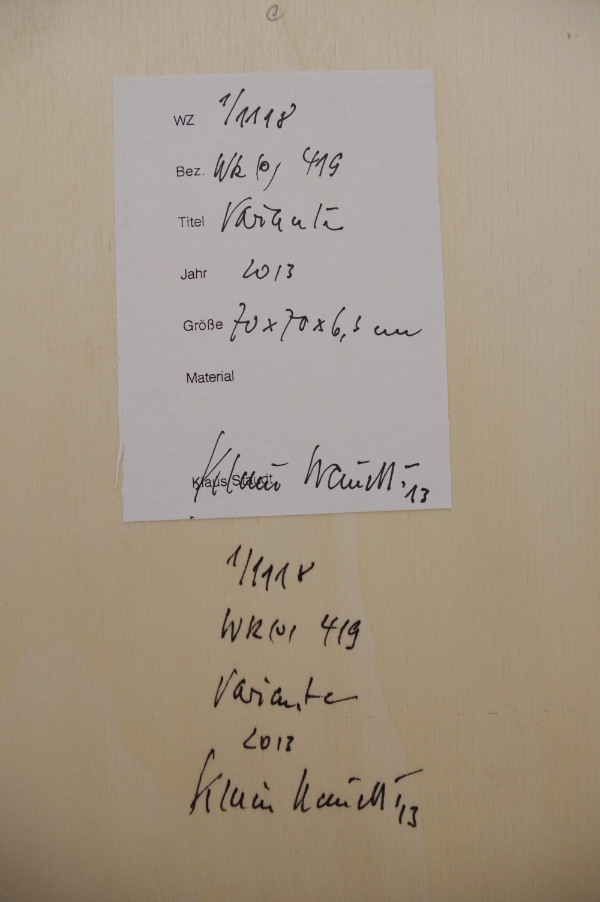 WZ 1/1118
Bez. WK(o) 419
Titel Variante
Jahr 2013
Größe 70x70x6,5 cm
Material
Klaus Staudt
Klaus Staudt '13
1/1118
WK(o) 419
Variante
2013
Klaus Staudt '13